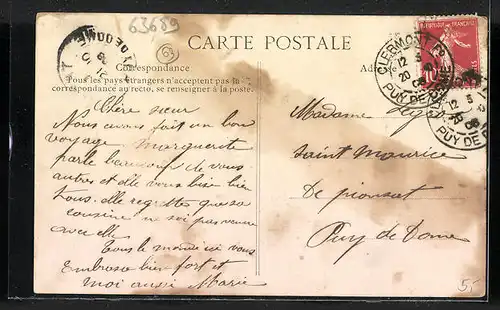 63689
63
CARTE POSTALE
Correspondance
Tous les pays étrangers n'acceptent pas la
correspondance au recto, se renseigner à la poste.
Chère sœur
Nous avons fait un bon
voyage Marguerite
parle beaucoup de vous
autres et elle vous bise bien
tous. elle regrette que sa
cousine ne soi pas venue
avec elle
Tous le monde ici vous
Embrase bien fort et
moi aussi Marie
Madame
Saint Maurice
De pionsat
Puy de Dome
CLERMONT
12 5
20
PUY DE
12 5
PUY DE
55